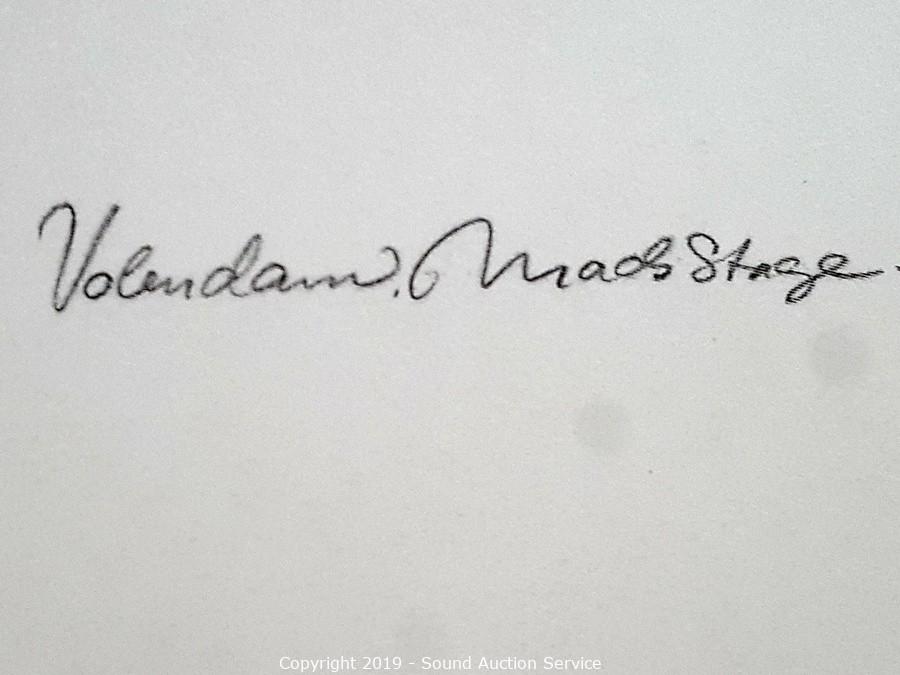 Volendam. Mads Stage.
Copyright 2019 - Sound Auction Service